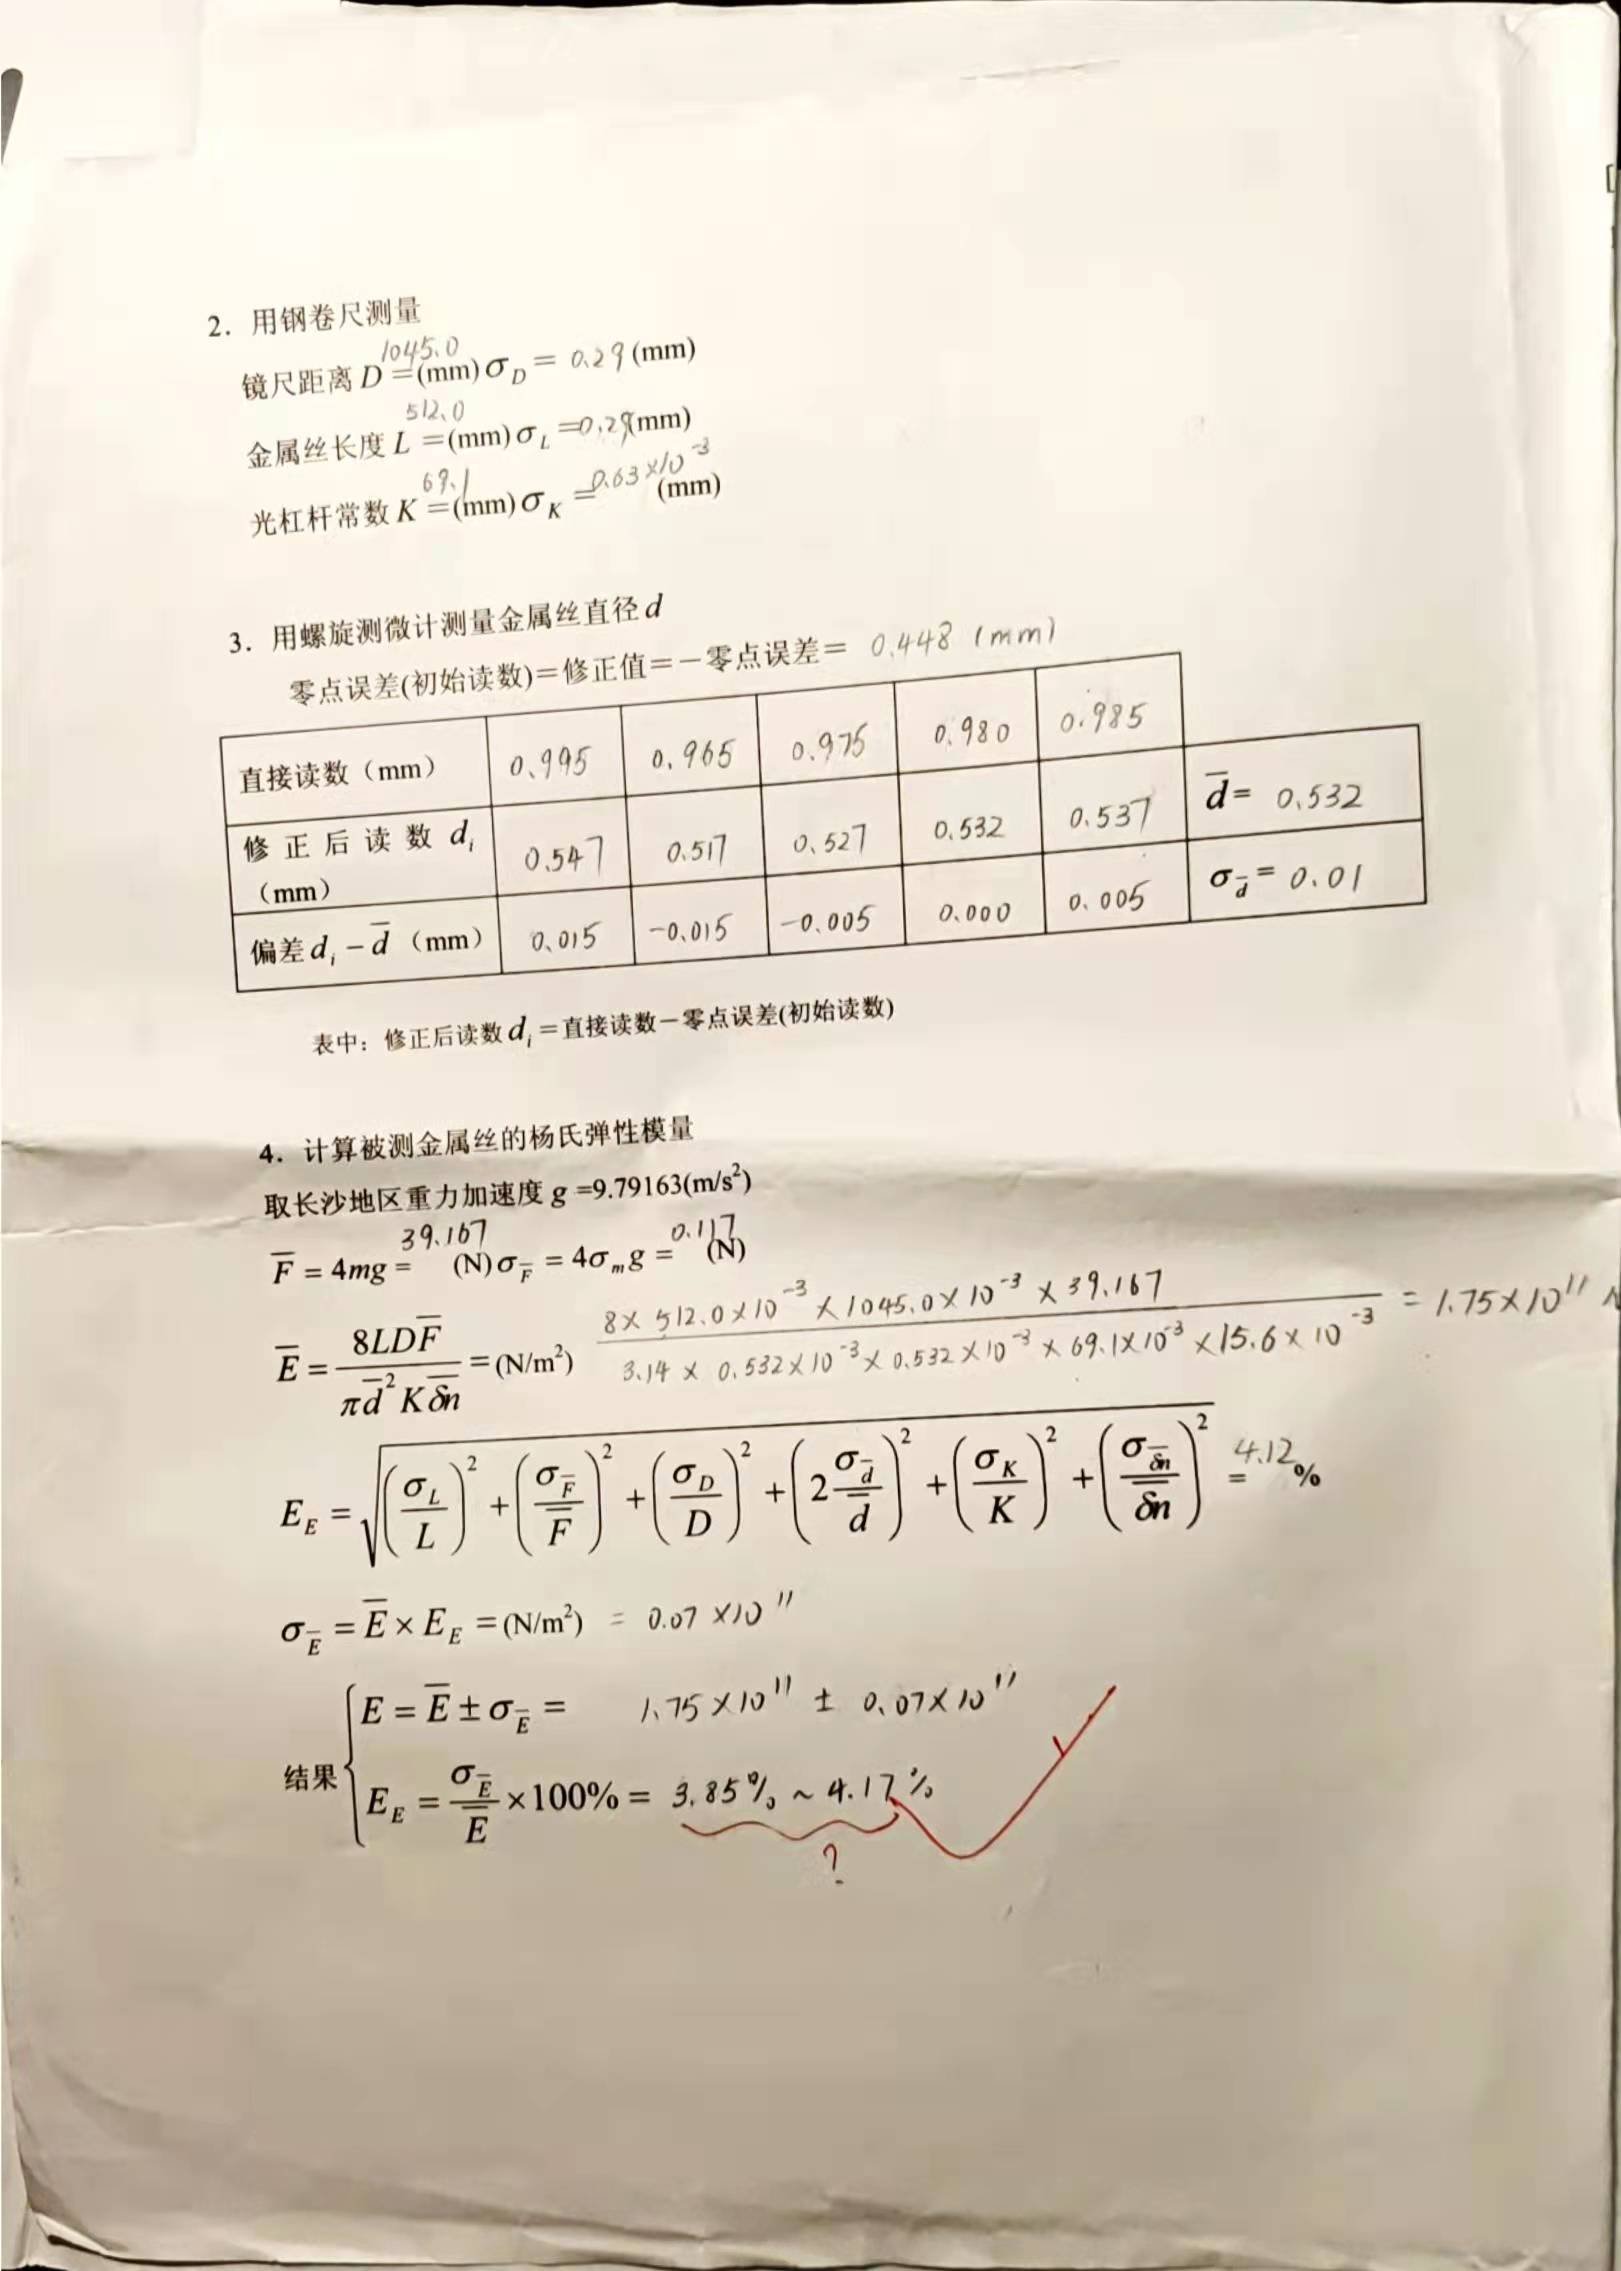 2. 用钢卷尺测量
镜尺距离 D = 1045.0 (mm) σ_D = 0.29 (mm)
金属丝长度 L = 512.0 (mm) σ_L = 0.29 (mm)
光杠杆常数 K = 69.1 (mm) σ_K = 0.63×10⁻³ (mm)
3. 用螺旋测微计测量金属丝直径 d
零点误差(初始读数)=修正值=-零点误差= 0.448 (mm)
直接读数（mm） 0.995 0.965 0.975 0.980 0.985
修正后读数 d_i（mm） 0.547 0.517 0.527 0.532 0.537 d̄ = 0.532
偏差 d_i - d̄（mm） 0.015 -0.015 -0.005 0.000 0.005 σ_d̄ = 0.01
表中：修正后读数 d_i =直接读数-零点误差(初始读数)
4. 计算被测金属丝的杨氏弹性模量
取长沙地区重力加速度 g =9.79163(m/s²)
F̄ = 4mg = 39.167 (N) σ_F̄ = 4σ_m g = 0.117 (N)
Ē = 8LDF̄ / πd̄²Kδn̄ = (N/m²) 8×512.0×10⁻³×1045.0×10⁻³×39.167 / 3.14×0.532×10⁻³×0.532×10⁻³×69.1×10⁻³×15.6×10⁻³ = 1.75×10¹¹
E_E = √((σ_L/L)² + (σ_F̄/F̄)² + (σ_D/D)² + (2σ_d̄/d̄)² + (σ_K/K)² + (σ_δn̄/δn̄)²) = 4.12 %
σ_Ē = Ē × E_E = (N/m²) = 0.07×10¹¹
结果
E = Ē ± σ_Ē = 1.75×10¹¹ ± 0.07×10¹¹
E_E = σ_Ē/Ē ×100% = 3.85% ~ 4.17%
?